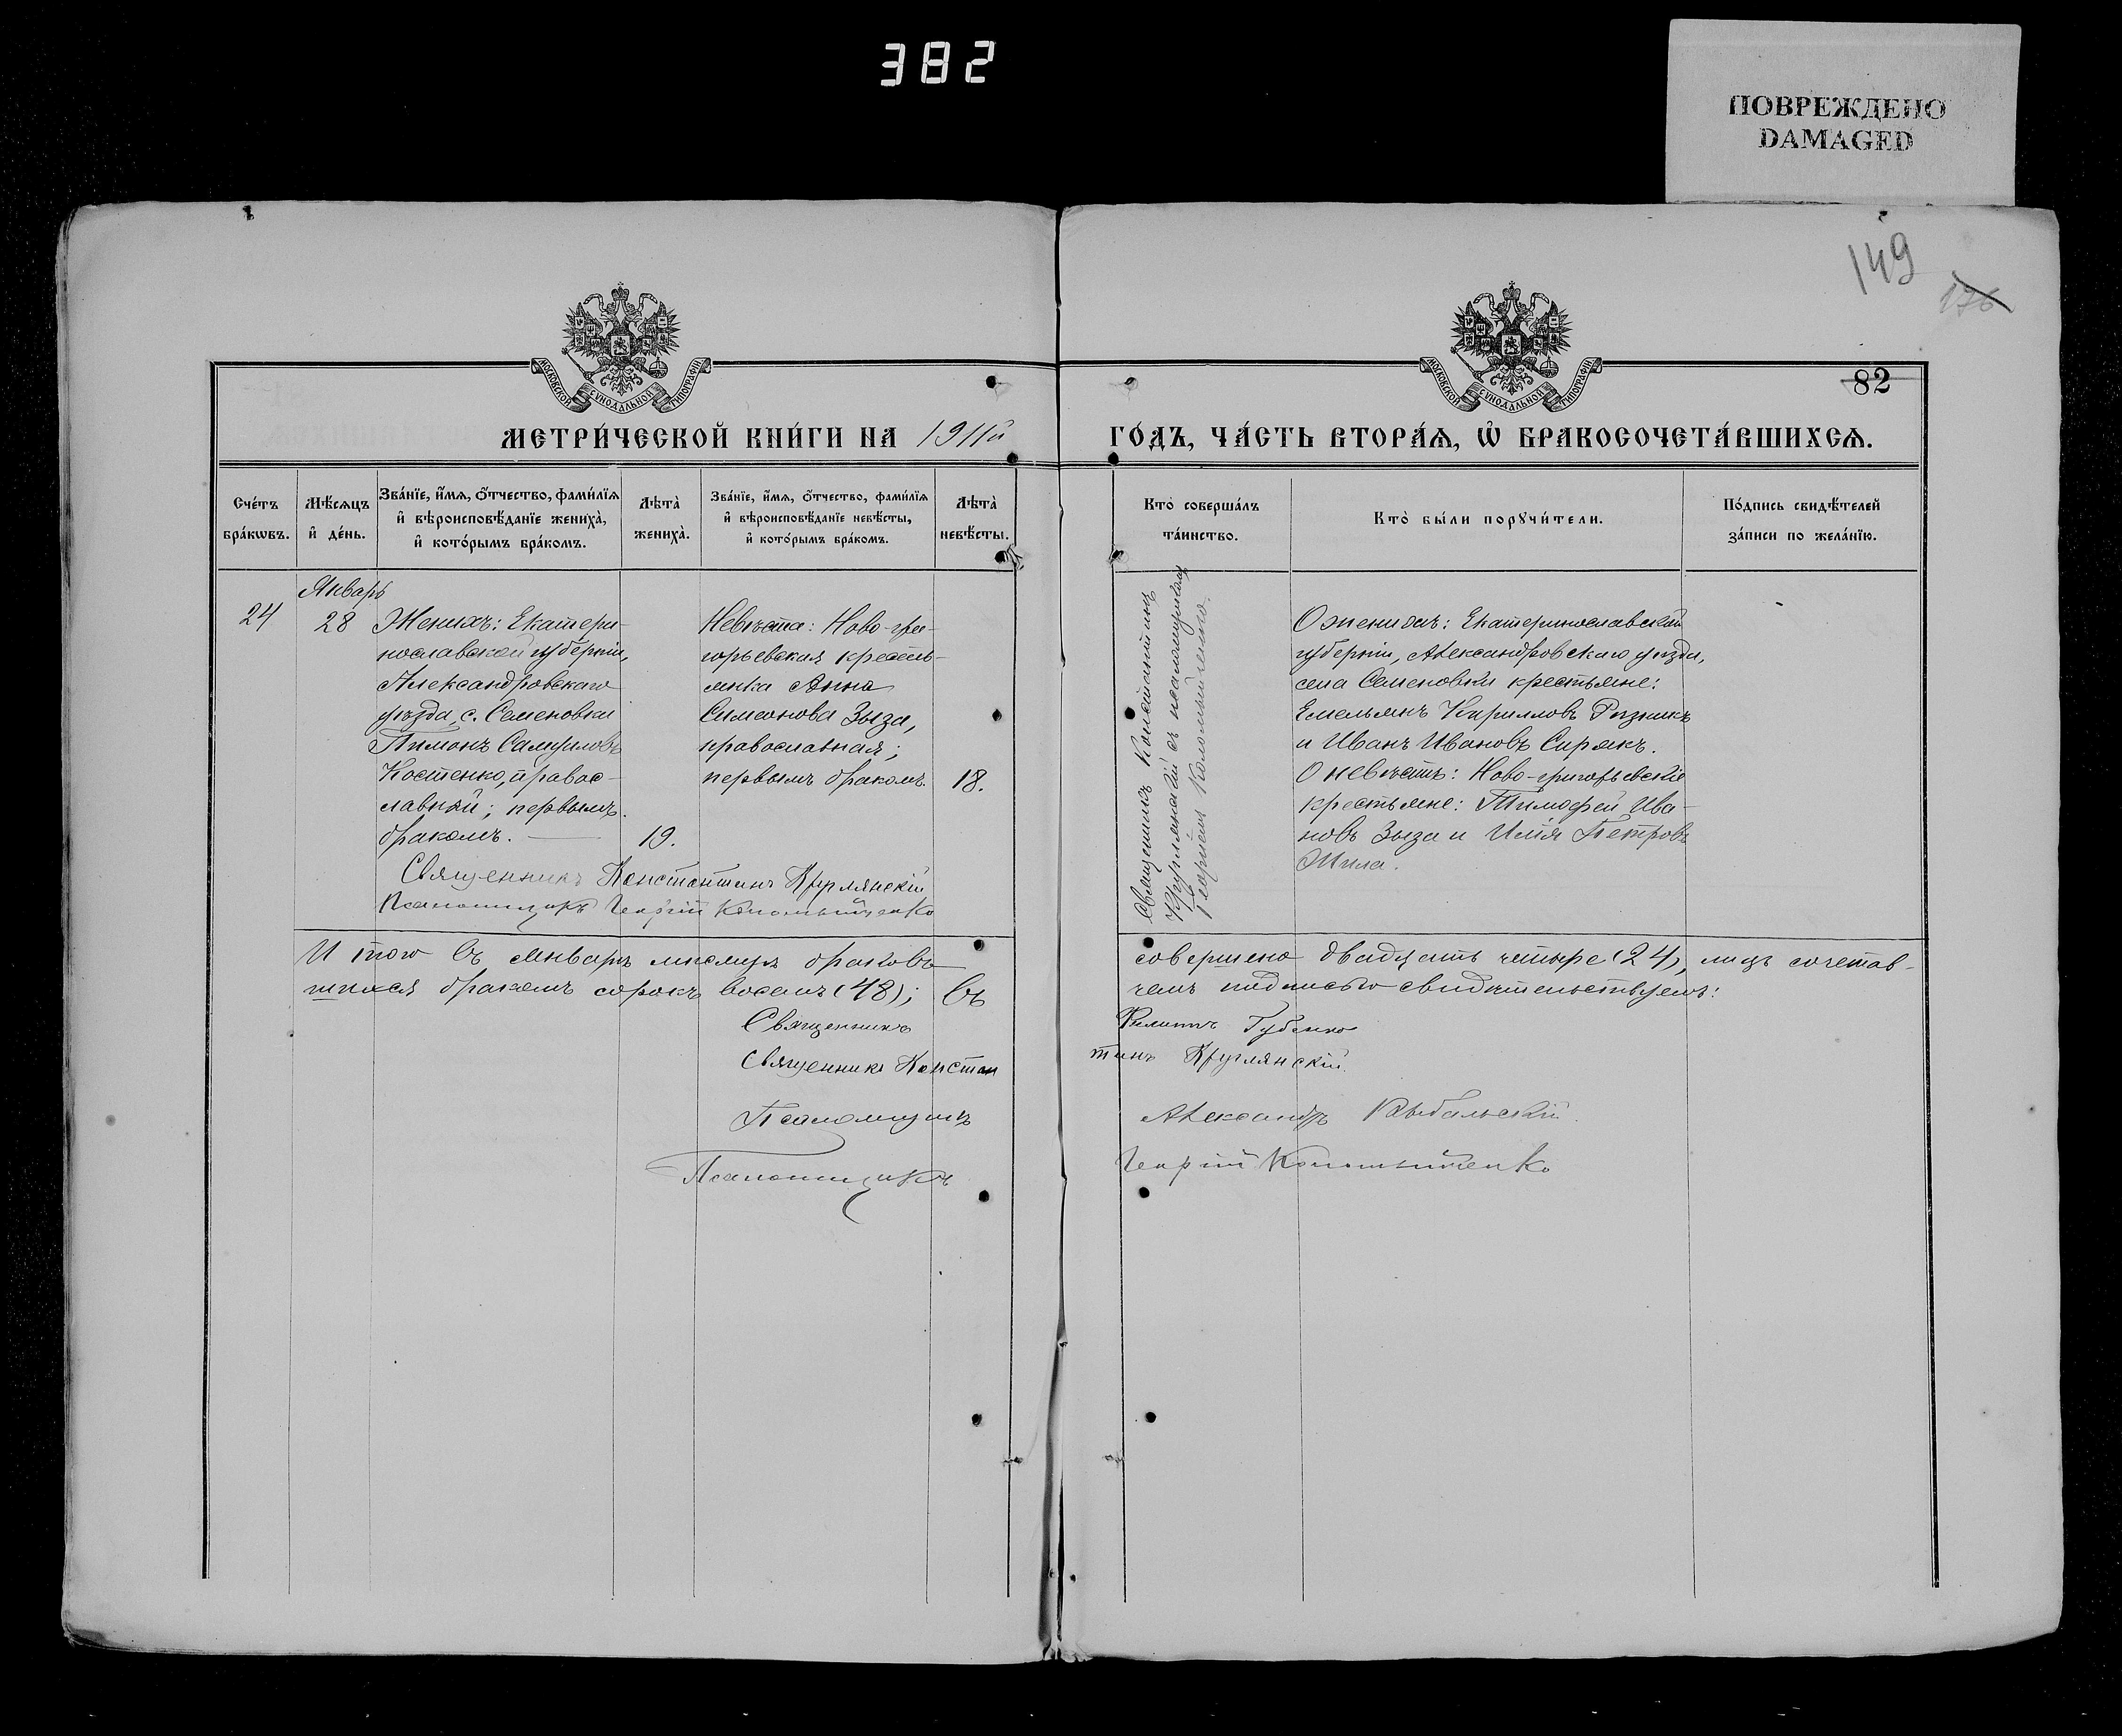 382
ПОВРЕЖДЕНО
DAMAGED
149
176
82
МОСКОВСКОЙ СѴНОДАЛЬНОЙ ТИПОГРАФІИ
МОСКОВСКОЙ СѴНОДАЛЬНОЙ ТИПОГРАФІИ
МЕТРИ́ЧЕСКОЙ КНИ́ГИ НА 1911й
ГО́ДЪ, ЧА́СТЬ ВТОРА́Ѧ, Ѽ БРАКОСОЧЕТА́ВШИХСѦ.
Сче́тъ
бра́кѡвъ.
Мѣ́сяцъ
и҆ де́нь.
Зва́нїе, и҆́мѧ, ѻ҆́тчество, фами́лїѧ
и҆ вѣроисповѣ́данїе жениха̀,
и҆ кото́рымъ бра́комъ.
Лѣта̀
жениха̀.
Зва́нїе, и҆́мѧ, ѻ҆́тчество, фами́лїѧ
и҆ вѣроисповѣ́данїе невѣ́сты,
и҆ кото́рымъ бра́комъ.
Лѣта̀
невѣ́сты.
Кто̀ соверша́лъ
та́инство.
Кто̀ бы́ли порꙋчи́тели.
По́дпись свидѣ́телей
за́писи по жела́нїю.
Январь
24
28
Женихъ: Екатери-
нославской губерніи,
Александровскаго
уѣзда, с. Семеновки
Тимонъ Самуиловъ
Костенко, правос-
лавный; первымъ
бракомъ.
19.
Невѣста: Ново-гри-
горьевская кресть-
янка Анна
Симеонова Зыза,
православная;
первымъ бракомъ.
18.
Священникъ Константинъ
Круглянскій съ псаломщикомъ
Георгіемъ Коломыйченко.
О женихѣ: Екатеринославской
губерніи, Александровскаго уѣзда,
села Семеновки крестьяне:
Емельянъ Кирилловъ Рѣзникъ
и Иванъ Ивановъ Сирякъ.
О невѣстѣ: Ново-григорьевскіе
крестьяне: Тимофей Ива-
новъ Зыза и Илія Петровъ
Священникъ Константинъ Круглянскій
Псаломщикъ Георгій Коломыйченко
Итого въ Январѣ мѣсяцѣ браковъ совершено двадцать четыре (24), лицъ сочетав-
шихся бракомъ сорокъ восемъ (48); въ чемъ подписью свидѣтельствуемъ:
Священникъ Филиппъ Губенко
Священникъ Константинъ Круглянскій.
Псаломщикъ Александръ Рыбальскій.
Псаломщикъ Георгій Коломыйченко